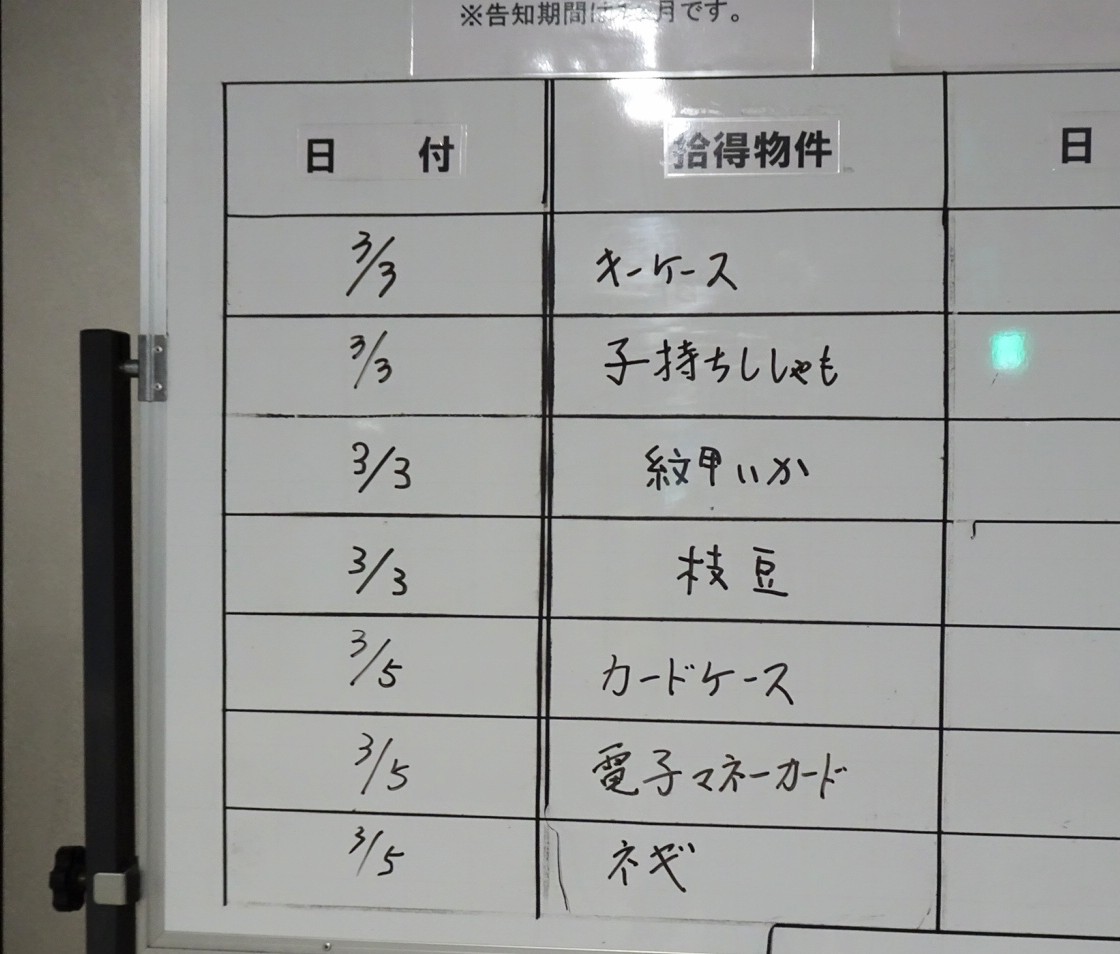 ※告知期間は ヶ月です。
日 付 拾得物件 日
3/3 キーケース
3/3 子持ちししゃも
3/3 紋甲いか
3/3 枝豆
3/5 カードケース
3/5 電子マネーカード
3/5 ネギ